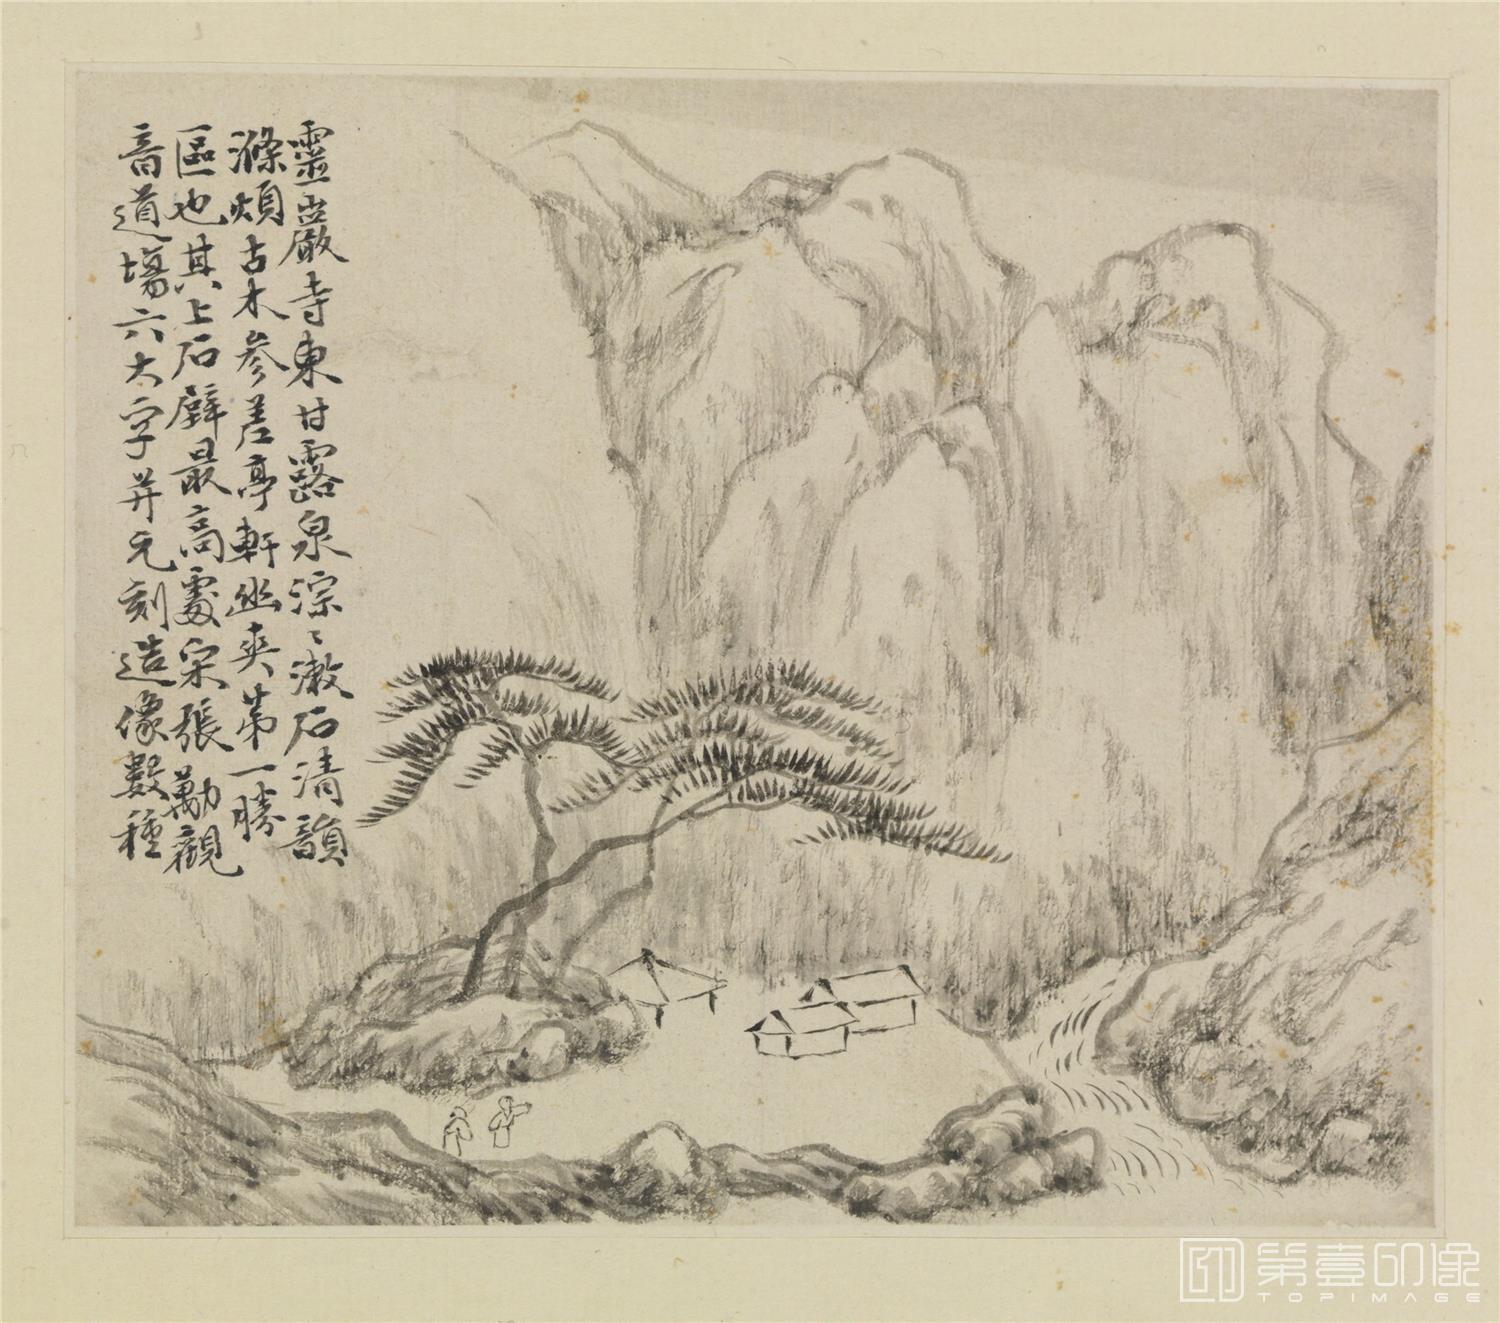 靈巖寺東甘露泉淙〻漱石清韻
滌煩古木參差亭軒幽爽第一勝
區也其上石壁最高處宋張勱觀
音道場六大字并元刻造像數種
第壹印像
TOPIMAGE